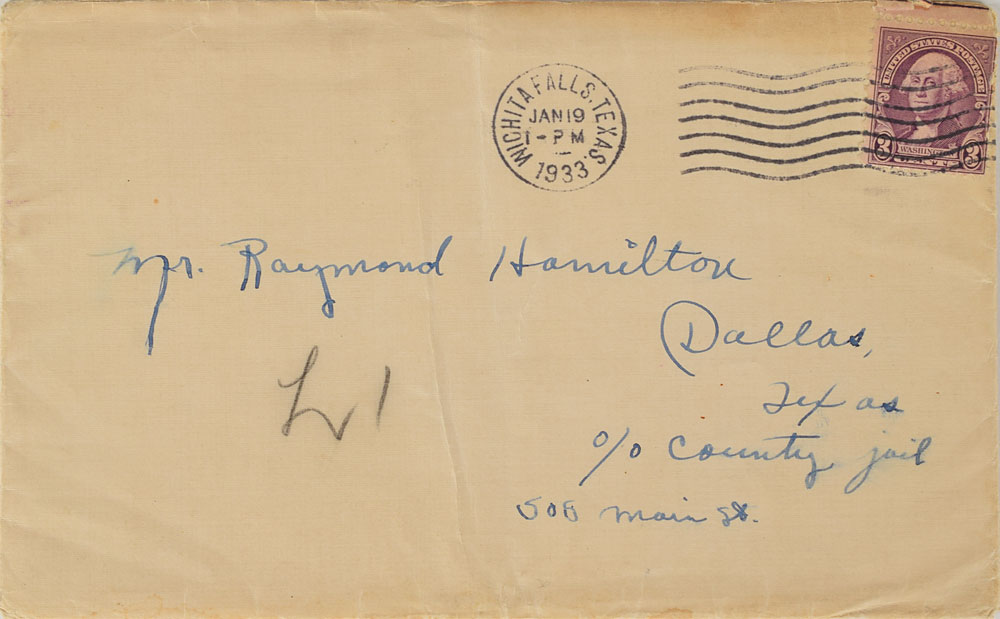 WICHITA FALLS, TEXAS.
JAN 19
1 - PM
1933
UNITED STATES POSTAGE
3 3
Mr. Raymond Hamilton
Dallas,
Texas
c/o County jail
500 main St.